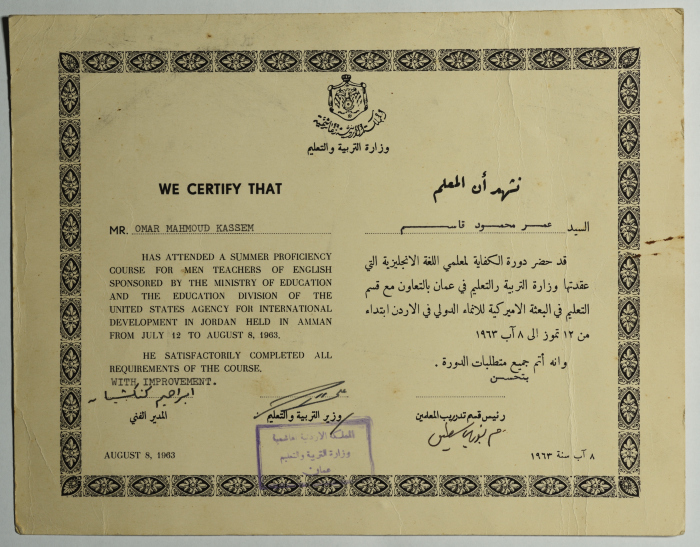 المملكة الاردنية الهاشمية
وزارة التربية والتعليم
WE CERTIFY THAT
MR. OMAR MAHMOUD KASSEM
HAS ATTENDED A SUMMER PROFICIENCY
COURSE FOR MEN TEACHERS OF ENGLISH
SPONSORED BY THE MINISTRY OF EDUCATION
AND THE EDUCATION DIVISION OF THE
UNITED STATES AGENCY FOR INTERNATIONAL
DEVELOPMENT IN JORDAN HELD IN AMMAN
FROM JULY 12 TO AUGUST 8, 1963.
HE SATISFACTORILY COMPLETED ALL
REQUIREMENTS OF THE COURSE.
WITH IMPROVEMENT.
نشهد أن المعلم
السيد عمر محمود قاسم
قد حضر دورة الكفاية لمعلمي اللغة الانجليزية التي
عقدتها وزارة التربية والتعليم في عمان بالتعاون مع قسم
التعليم في البعثة الاميركية للانماء الدولي في الاردن ابتداء
من ١٢ تموز الى ٨ آب ١٩٦٣
وانه أتم جميع متطلبات الدورة .
بتحسن
رئيس قسم تدريب المعلمين
وزير التربية والتعليم
المدير الفني
المملكة الاردنية الهاشمية
وزارة التربية والتعليم
عمان
AUGUST 8, 1963
٨ آب سنة ١٩٦٣